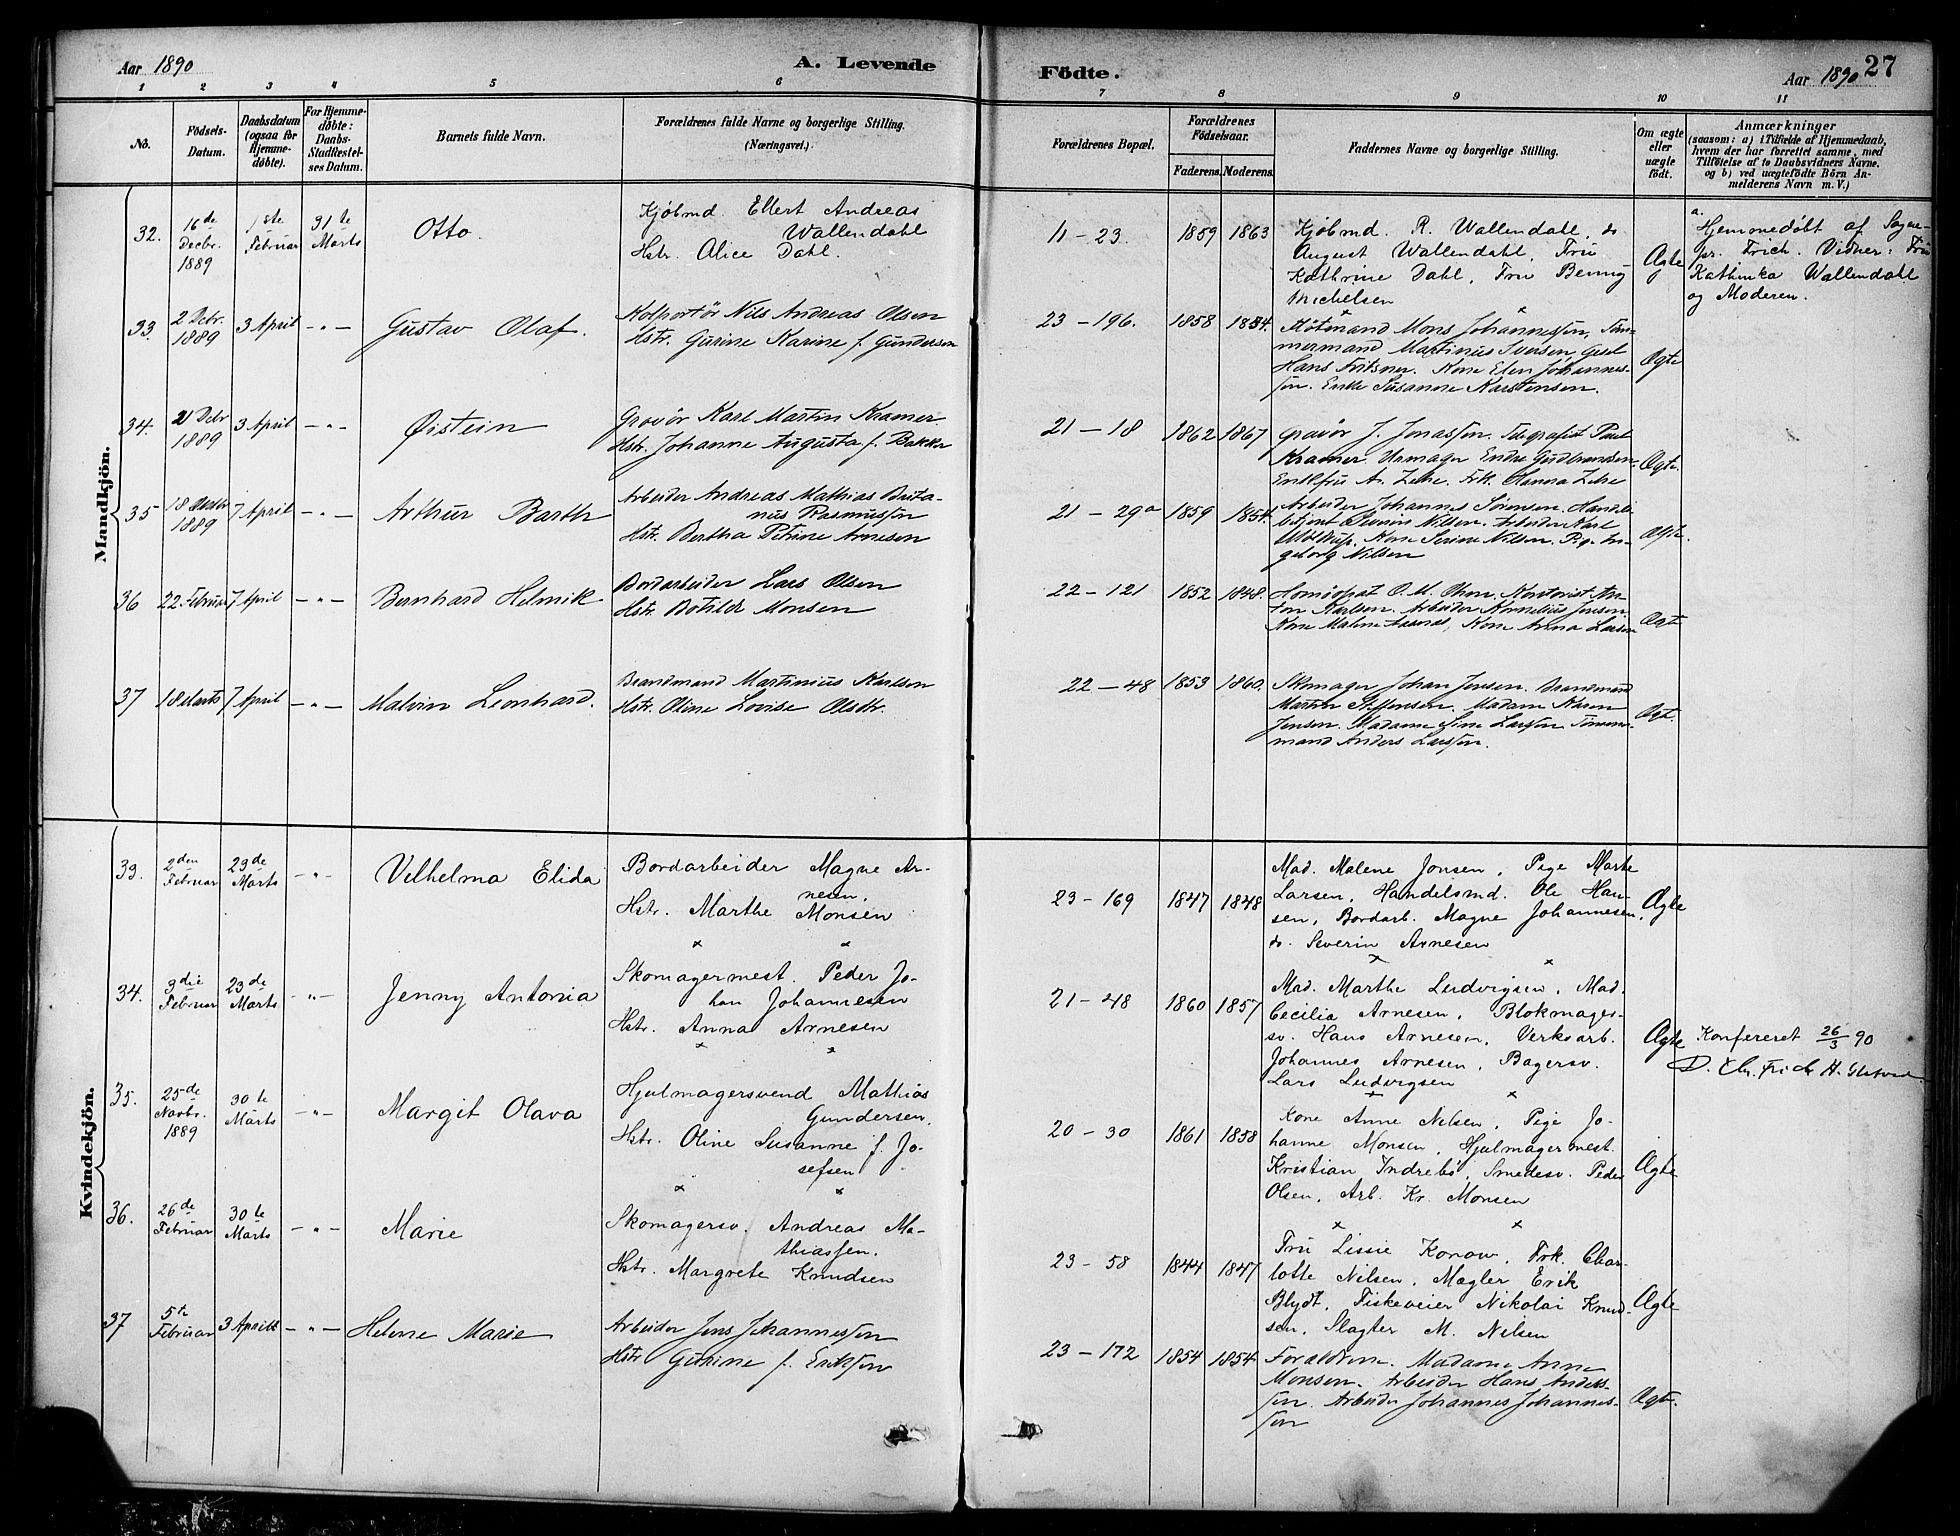 Aar 1890
A. Levende
Födte.
Aar 1890
27
1 2 3 4 5 6 7 8 9 10 11
No.
Födsels-
Datum.
Daabsdatum
(ogsaa for
Hjemme-
döbte).
For Hjemme-
döbte:
Daabs-
Stadfæstel-
ses Datum.
Barnets fulde Navn.
Forældrenes fulde Navne og borgerlige Stilling.
(Næringsvei.)
Forældrenes Bopæl.
Forældrenes
Födselsaar.
Faderens. Moderens.
Faddernes Navne og borgerlige Stilling.
Om ægte
eller
uægte
födt.
Anmærkninger
(saasom: a) i Tilfælde af Hjemmedaab,
hvem der har forrettet samme, med
Tilföielse af to Daabsvidners Navne,
og b) ved uægtefödte Börn An-
melderens Navn m. V.)
Mandkjön.
32.
16de
Decbr.
1889
1ste
Februar
31te
Marts
Otto.
Kjöbmd. Ellert Andreas
Wallendahl
Hstr. Alice Dahl.
11-23.
1859
1863
Kjöbmd. R. Wallendahl, do
August Wallendahl, Fru
Kathrine Dahl, Fru Benny
Michelsen
Ægte
a.
Hjemmedöbt af Sogne-
pr. Frich. Vidner: Fru
Kathinka Wallendahl
og Moderen.
33.
2 Decbr.
1889
3 April
-"-
Gustav Olaf.
Kolportör Nils Andreas Olsen
Hstr. Gurine Karine f. Gundersen
23-196.
1858
1854.
Mons Johannessen, Töm-
mermand Martinus Iversen,
Hans Fritzner. Kone Elen Johannes-
sen. Enke Susanne Karstensen.
Ægte
34.
2 Decbr
1889
3 April
-"-
Øistein
Gravör Karl Martin Kramer
Hstr. Johanne Augusta f. Bakker
21-18
1862
1867
Gravör J. Jonassen. Telegrafist Paul
Kramer. Urmager Endre Gudbrandsen.
Frk. Hanna
Ægte.
35
18 Oktbr
1889
7 April
-"-
Arthur Barth
Arbeider Andreas Mathias Brita-
nus Rasmussen
Hstr. Bertha Petrine Arnesen
21-29a
1859
1854.
Arbeider Johannes Sörensen. Handels-
betjent Severin Nilsen. Arbeider Karl
Kone Serine Nilsen. Pige In-
geborg Nilsen
Ægte.
36
22 Februar
7 April
-"-
Bernhard Helmik
Bordarbeider Lars Olsen
Hstr. Botilde Monsen
22-121
1852
1848.
Homöopat O. M. Kontorist An-
ton Karlsen. Arbeider Kornelius Jensen
Kone Malene Kone Anna Larsen
Ægte
37
18 Marts
7 April
-"-
Malvin Leonhard.
Brandmand Martinius Karlsen
Hstr. Oline Lovise Olsdtr.
22-48
1853
1860.
Skomager Johan Jensen. Brandmand
Martin Steffensen. Madam
Jensen. Madame Sine Larssen Tömmer-
mand Anders Larssen.
Ægt.
Kvindekjön.
33.
2den
Februar
23de
Marts
-"-
Vilhelma Elida
Bordarbeider Magne Ar-
nesen.
Hstr. Marthe Monsen
23-169
1847
1848
Mad. Malene Jonsen, Pige Marte
Larsen, Handelsmd. Ole Han-
sen, Bordarb. Magne Johannesen,
do. Severin Arnesen
Ægte
34.
3die
Februar
23de
Marts
-"-
Jenny Antonia
Skomagermest. Peder Jo-
han Johannesen
Hstr. Anna Arnesen
21-48
1860
1857
Mad. Marthe Ludvigsen, Mad.
Cecilia Arnesen, Blokmager-
sv. Hans Arnesen, Verksarb.
Johannes Arnesen, Bagersv.
Lars Ludvigsen
Ægte
Konfereret 26/3 90
35.
25de
Novbr.
1889
30te
Marts
-"-
Margit Olava
Hjulmagersvend Mathias
Gundersen.
Hstr. Oline Susanne f. Jo-
sefsen
20-30
1861
1858
Kone Anne Nilsen, Pige Jo-
hanne Monsen, Hjulmagermest.
Kristian Indrebö, Smedesv. Peder
Olsen, Arb. Kr. Monsen
Ægte
36.
26de
Februar
30te
Marts
-"-
Marie
Skomagersv. Andreas Ma-
thiassen.
Hstr. Margrete Knudsen
23-58
1844
1847
Fru Lissie Konow, Frk. Char-
lotte Nilsen, Mægler Erik
Blydt, Fiskeveier Nikolai Knud-
sen, Slagter M. Nilsen
Ægte
37
5te
Februar
3 April
-"-
Helene Marie
Arbeider Jens Johannessen
Hstr Gurine f. Eriksen
23-172
1854
1854.
Forældrene. Madame Anne
Monsen. Arbeider Hans Anders-
sen. Arbeider Johannes Johannes-
sen
Ægt.